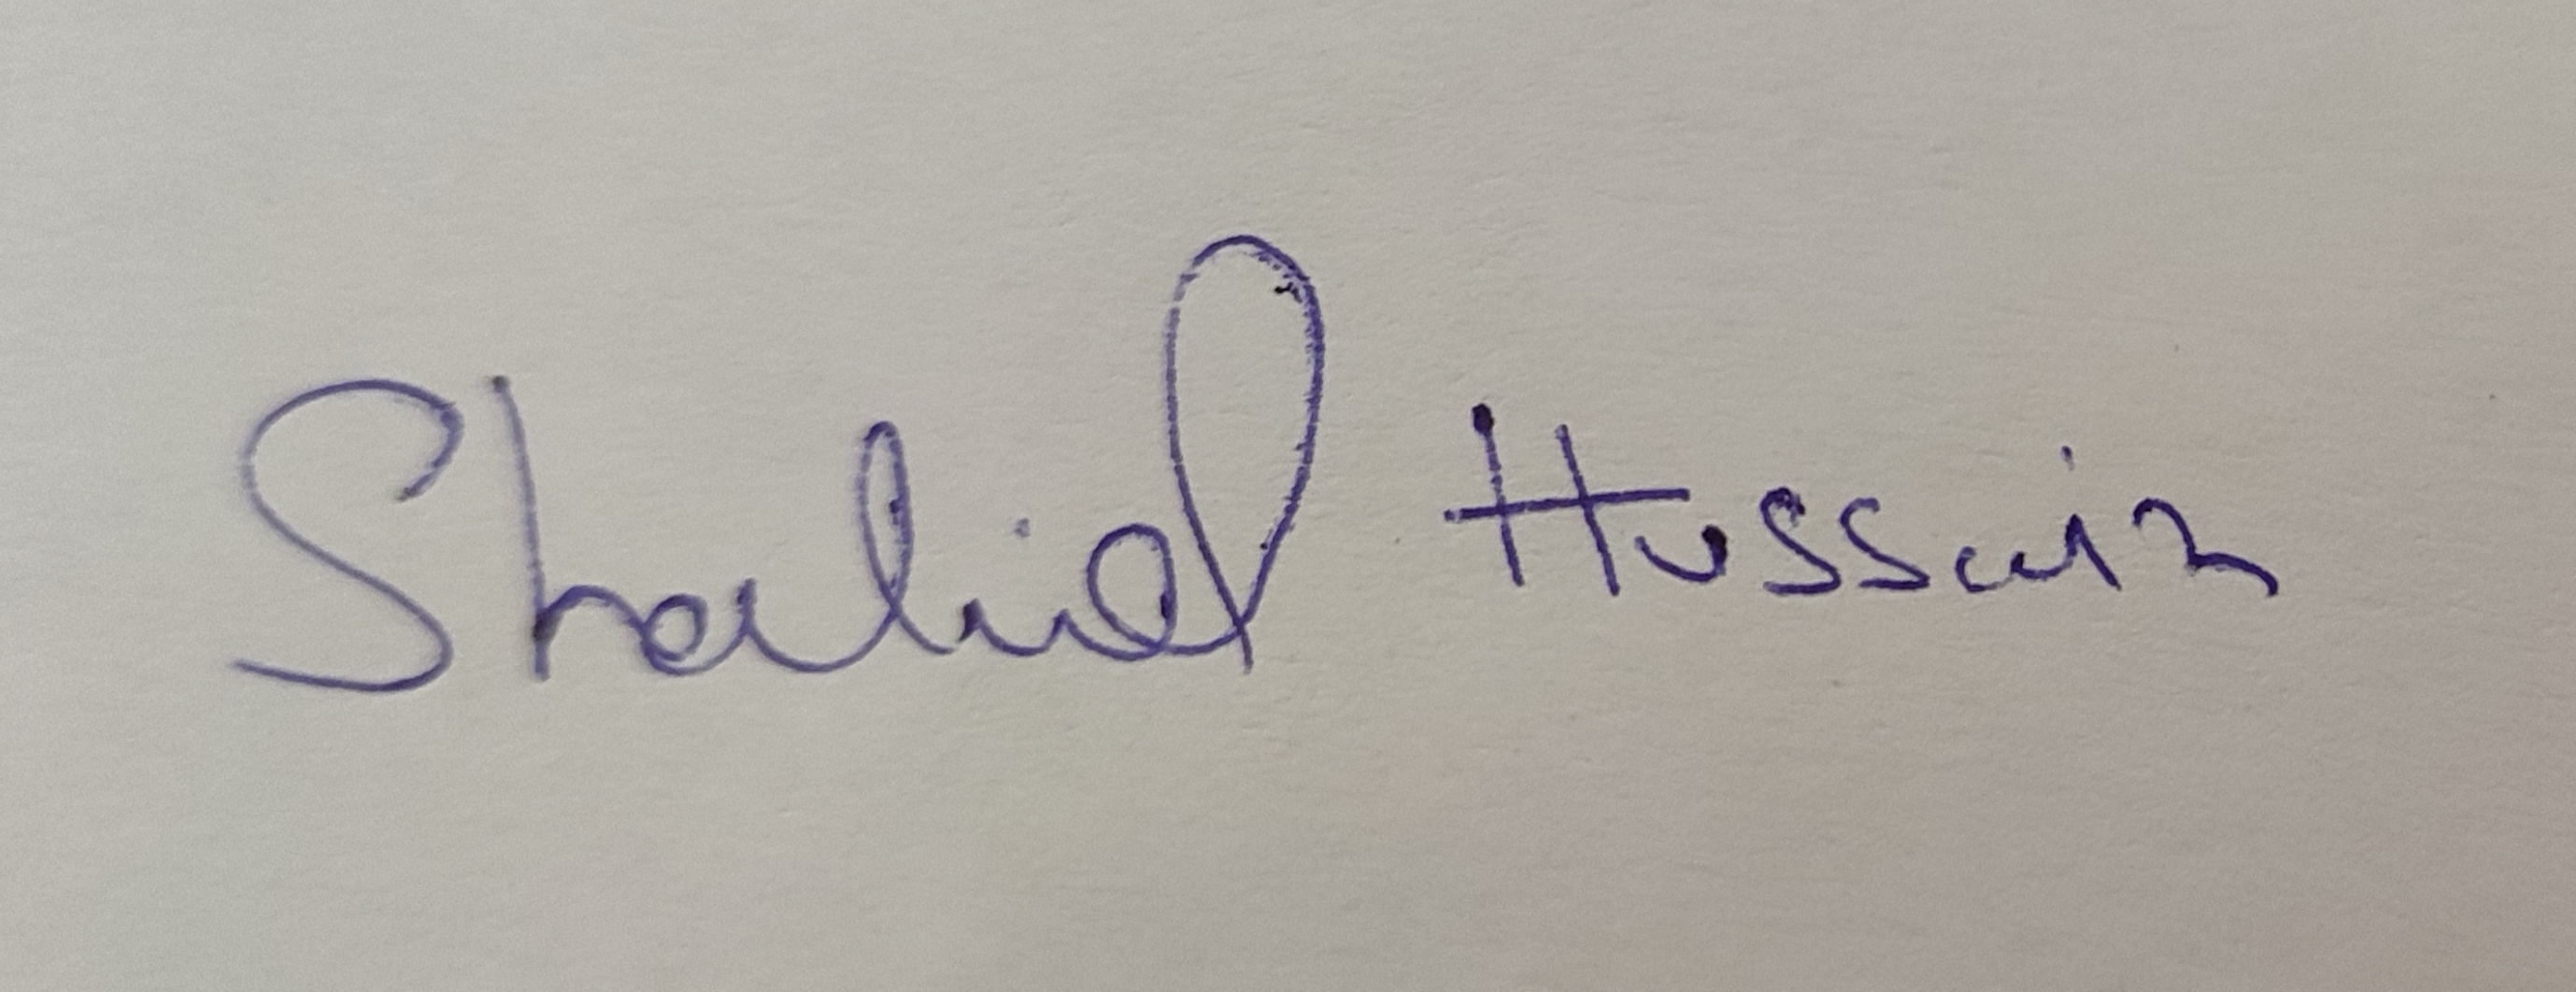 Shahid Hussain